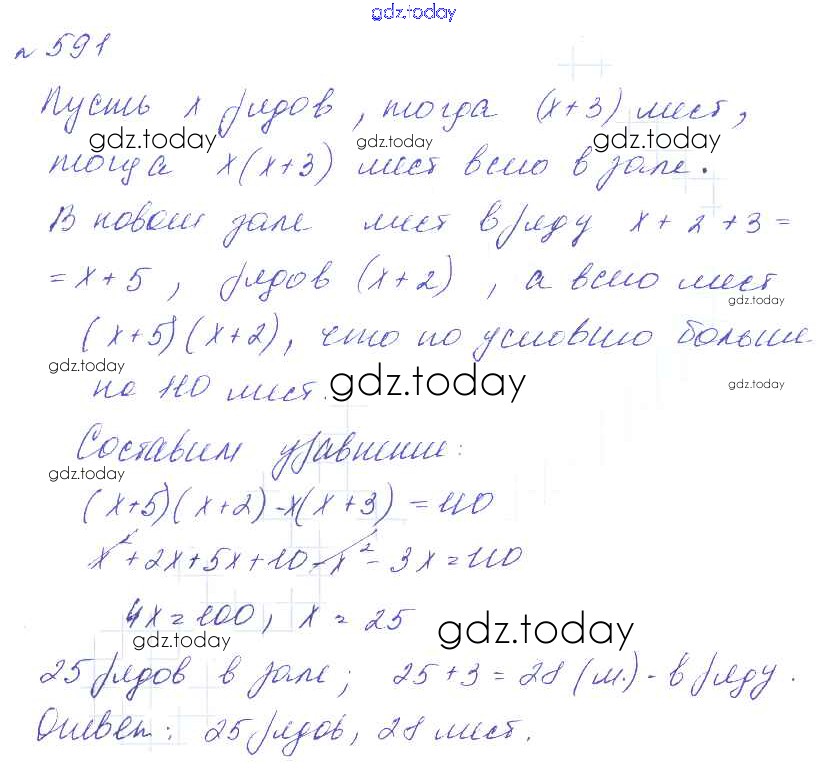 gdz.today
№ 591
Пусть x рядов, тогда (x+3) мест,
gdz.today gdz.today gdz.today
тогда x(x+3) мест всего в зале.
В новом зале мест в ряду x+2+3=
=x+5, рядов (x+2), а всего мест
gdz.today
(x+5)(x+2), что по условию больше
gdz.today
на 110 мест.
gdz.today gdz.today
Составим уравнение:
gdz.today
(x+5)(x+2)-x(x+3)=110
x²+2x+5x+10-x²-3x=110
4x=100, x=25
gdz.today gdz.today
25 рядов в зале; 25+3=28 (м.)-в ряду.
Ответ: 25 рядов, 28 мест.